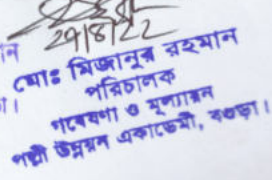 29/8/22
মোঃ মিজানুর রহমান
পরিচালক
গবেষণা ও মূল্যায়ন
পল্লী উন্নয়ন একাডেমী, বগুড়া।